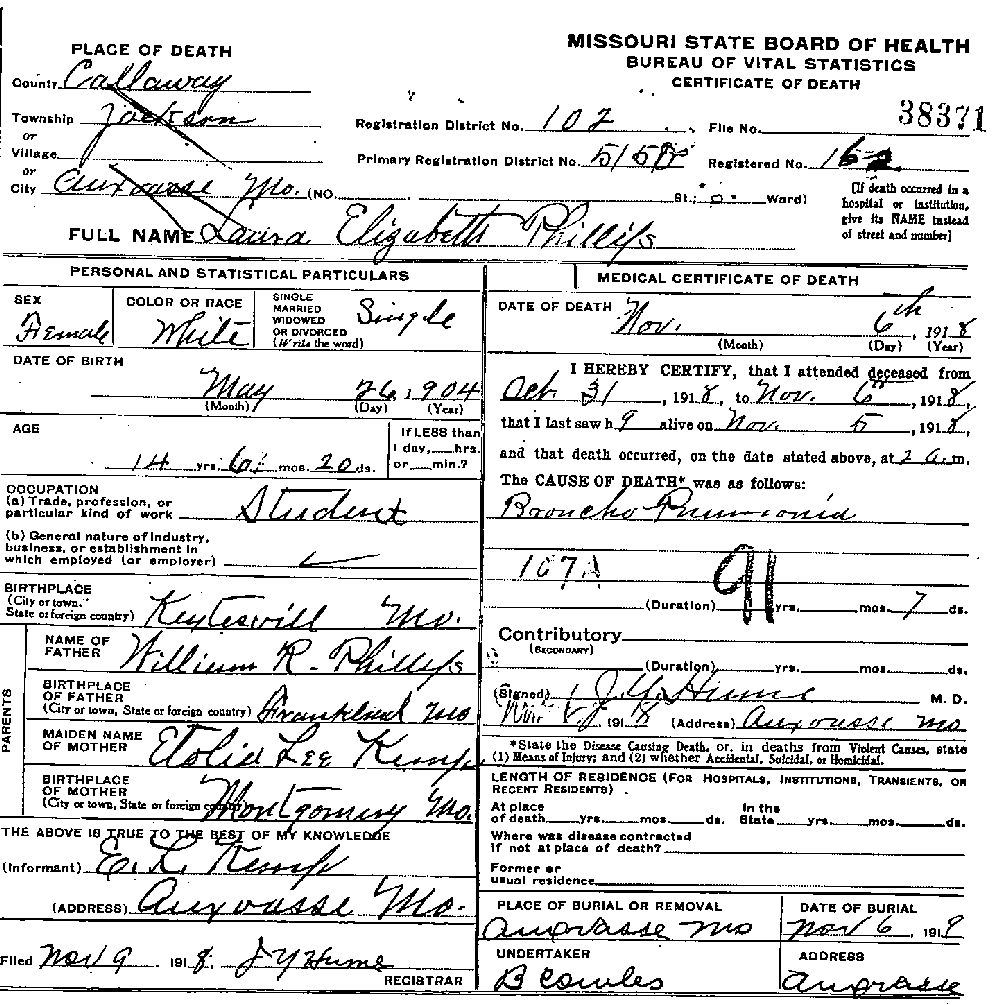 MISSOURI STATE BOARD OF HEALTH
BUREAU OF VITAL STATISTICS
CERTIFICATE OF DEATH
PLACE OF DEATH
County Callaway
Township Jackson
or
Village
or
City Auxvasse Mo. (NO. St.; Ward)
Registration District No. 102 File No. 38371
Primary Registration District No. Registered No.
[If death occurred in a
hospital or institution,
give its NAME instead
of street and number]
FULL NAME Laura Elizabeth Phillips
PERSONAL AND STATISTICAL PARTICULARS
SEX
Female
COLOR OR RACE
White
SINGLE
MARRIED
WIDOWED
OR DIVORCED
(Write the word)
Single
DATE OF BIRTH
May 26, 1904
(Month) (Day) (Year)
AGE
14 yrs. 6 mos. 20 ds.
If LESS than
1 day,___hrs.
or___min.?
OCCUPATION
(a) Trade, profession, or
particular kind of work Student
(b) General nature of industry,
business, or establishment in
which employed (or employer)
BIRTHPLACE
(City or town,
State or foreign country) Keyteswill Mo.
PARENTS
NAME OF
FATHER William R. Phillips
BIRTHPLACE
OF FATHER
(City or town, State or foreign country) Mo
MAIDEN NAME
OF MOTHER Etolia Lee Kemp
BIRTHPLACE
OF MOTHER
(City or town, State or foreign country) Montgomery Mo.
THE ABOVE IS TRUE TO THE BEST OF MY KNOWLEDGE
(Informant) E. L. Kemp
(ADDRESS) Auxvasse Mo.
Filed Nov 9 1918. J Y Hume
REGISTRAR
MEDICAL CERTIFICATE OF DEATH
DATE OF DEATH
Nov. 6th 1918
(Month) (Day) (Year)
I HEREBY CERTIFY, that I attended deceased from
Oct. 31, 1918, to Nov. 6th, 1918,
that I last saw h alive on Nov. 5, 1918,
and that death occurred, on the date stated above, at 2 a.m.
The CAUSE OF DEATH* was as follows:
Broncho Pneumonia
107A 91
(Duration) yrs. mos. 7 ds.
Contributory
(SECONDARY)
(Duration) yrs. mos. ds.
(Signed) J.Y. Hume M. D.
1918 (Address) Auxvasse Mo
*State the Disease Causing Death, or, in deaths from Violent Causes, state
(1) Means of Injury; and (2) whether Accidental, Suicidal, or Homicidal.
LENGTH OF RESIDENCE (FOR HOSPITALS, INSTITUTIONS, TRANSIENTS, OR
RECENT RESIDENTS)
At place
of death___yrs.___mos.___ds.
In the
State___yrs.___mos.___ds.
Where was disease contracted
if not at place of death?
Former or
usual residence
PLACE OF BURIAL OR REMOVAL
Auxvasse Mo
DATE OF BURIAL
Nov 6, 191
UNDERTAKER
B Cowles
ADDRESS
Auxvasse